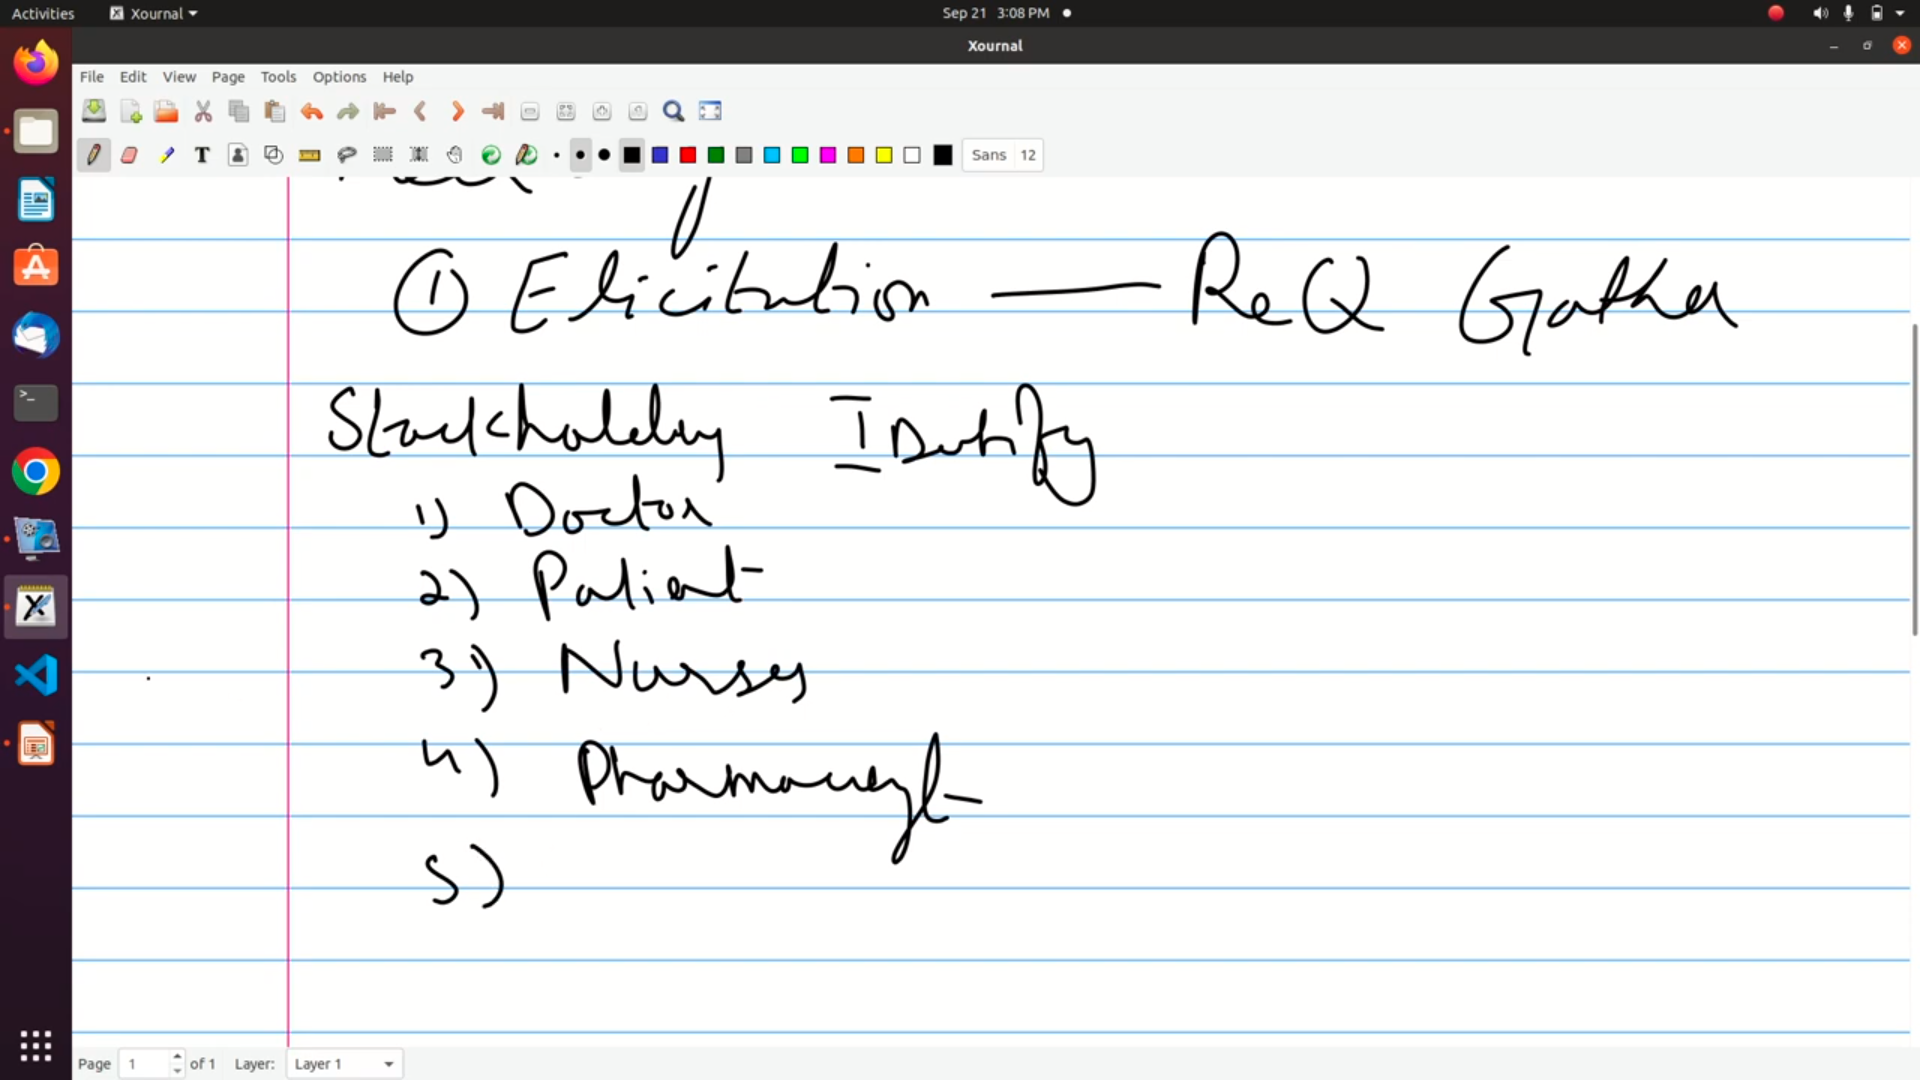 Activities Xournal Sep 21 3:08 PM
Xournal
File Edit View Page Tools Options Help
T Sans 12
① Elicitation — ReQ Gather
Stackholders IDentify
1) Doctor
2) Patient
3) Nurses
4) Pharmacyst
5)
Page 1 of 1 Layer: Layer 1